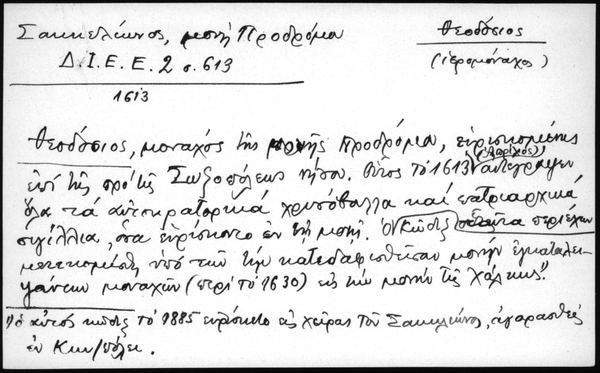 Σακκελίωνος, μονή Προδρόμου
Δ.Ι.Ε.Ε. 2 σ. 613
Θεοδόσιος
(ἱερομόναχος)
1613
Θεοδόσιος, μοναχός τῆς μονῆς Προδρόμου, εὑρισκομένης
ἐπί τῆς πρό τῆς Σωζοπόλεως νήσου. Οὗτος τό 1613 ἀντέγραψεν
ὅλα τά αὐτοκρατορικά χρυσόβουλλα καί πατριαρχικά
σιγίλλια, ὅσα εὑρίσκοντο ἐν τῇ μονῇ. Ὁ κῶδιξ ταῦτα περιέχων
μετεκομίσθη ὑπό τῶν τήν κατεδαφισθεῖσαν μονήν ἐγκαταλει-
ψάντων μοναχῶν (περί τό 1630) εἰς τήν μονήν τῆς Χάλκης".
"ὁ αὐτός κῶδιξ τό 1885 εὑρίσκετο εἰς χεῖρας τοῦ Σακκελίωνος, ἀγορασθείς
ἐν Κων/πόλει.